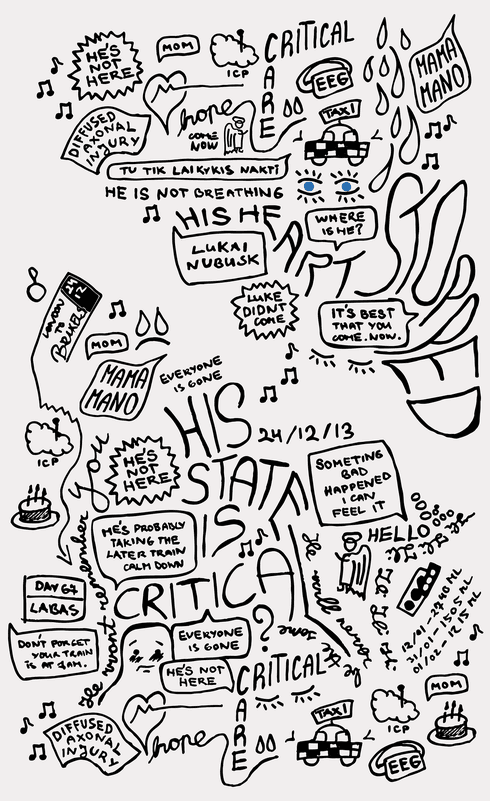 HE'S
NOT
HERE
MOM
ICP
CRITICAL
CARE
EEG
MAMA
MANO
DIFFUSED
AXONAL
INJURY
hope
COME
NOW
TAXI
TU TIK LAIKYKIS NAKTĮ
HE IS NOT BREATHING
HIS HEART STOP
WHERE
IS HE?
LUKAI
NUBUSK
LUKE
DIDNT
COME
IT'S BEST
THAT YOU
COME. NOW.
LONDON
TO
MOM
MAMA
MANO
EVERYONE
IS GONE
HIS
24/12/13
STATE
IS
CRITICAL
?
ICP
HE'S
NOT
HERE
SOMETING
BAD
HAPPENED
I CAN
FEEL IT
HE'S PROBABLY
TAKING THE
LATER TRAIN
CALM DOWN
He wont remember you
HELLO
DAY 67
LABAS
DON'T FORGET
YOUR TRAIN
IS AT 9AM.
EVERYONE
IS GONE
HE'S NOT
HERE
12/01-2740 ML
31/01-1505 ML
01/02-1215 ML
CRITICAL
CARE
MOM
ICP
TAXI
EEG
DIFFUSED
AXONAL
INJURY
hope